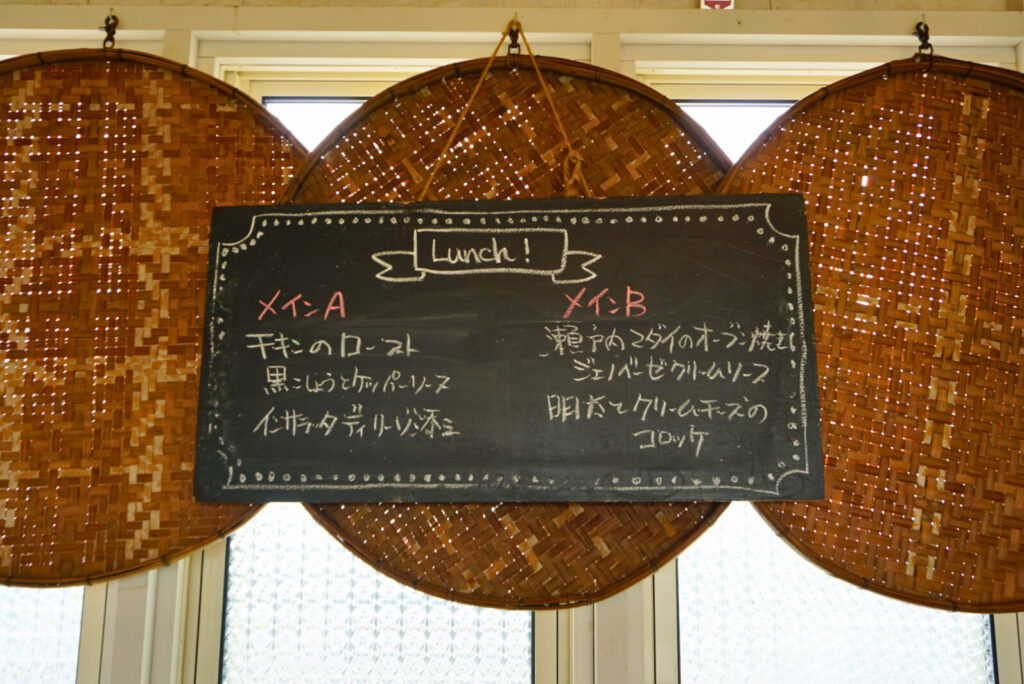 Lunch!
メインA
チキンのロースト
黒こしょうとケッパーソース
インサラータディリーゾ添え
メインB
瀬戸内マダイのオーブン焼き
ジェノベーゼクリームソース
明太とクリームチーズの
コロッケ